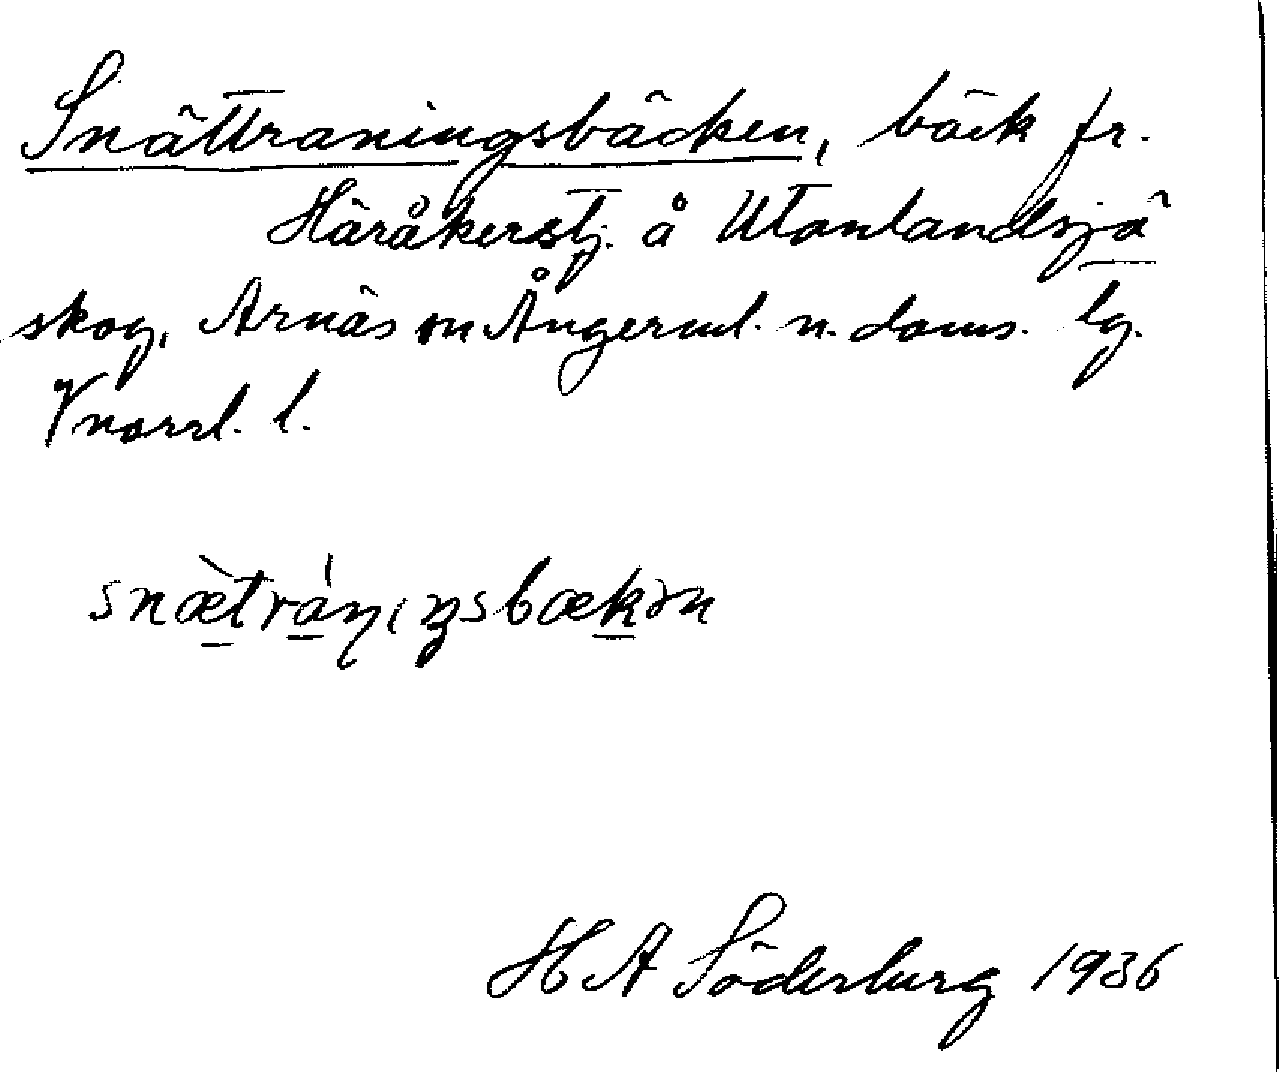 Snättraningsbäcken, bäck fr.
Häråkerstj. å Utanlandsjö
skog, Arnäs sn Ångerml. n. doms. lg.
Vnorrl. l.
snætràŋıŋsbækən
H A Söderburg 1936